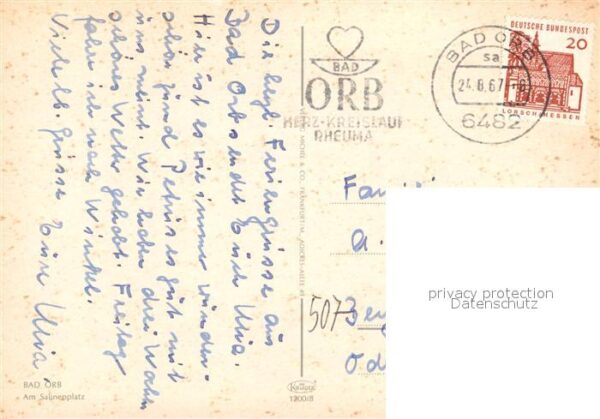 Die herzl. Feriengrüsse aus
Bad Orb sendet Euch Ulla.
Hier ist es wie immer wunder-
schön und Petrus ist gut mit
uns meint. Wir haben drei Wochen
schönes Wetter gehabt. Freitag
fahre ich nach Winkel.
Viele lb. Grüsse Eure Ulla
BAD ORB
Am Salinenplatz
BAD
ORB
HERZ-KREISLAUF
RHEUMA
BAD ORB
sa
24.8.67
6482
DEUTSCHE BUNDESPOST
20
LORSCH/HESSEN
Fami
a.
5073
Ode
Krüger
1200/8
privacy protection
Datenschutz